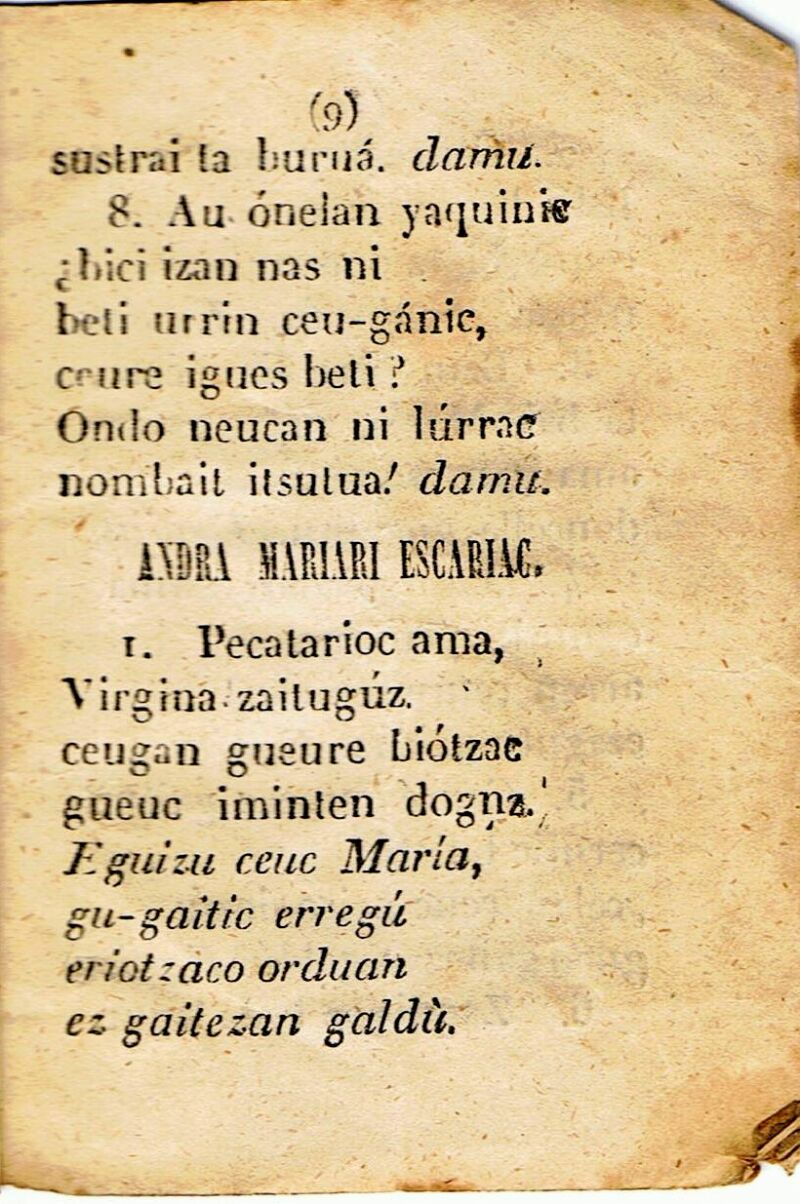 (9)
sustrai ta buruá. damu.
8. Au ónelan yaquinic
¿bici izan nas ni
beti urrin ceu-gánic,
ceure igues beti?
Ondo neucan ni lúrrac
nombait itsutua! damu.
ANDRA MARIARI ESCARIAC.
1. Pecatarioc ama,
Virgina zaitugúz.
ceugan gueure biótzac
gueuc iminten doguz.
Eguizu ceuc María,
gu-gaitic erregú
eriotzaco orduan
ez gaitezan galdù.